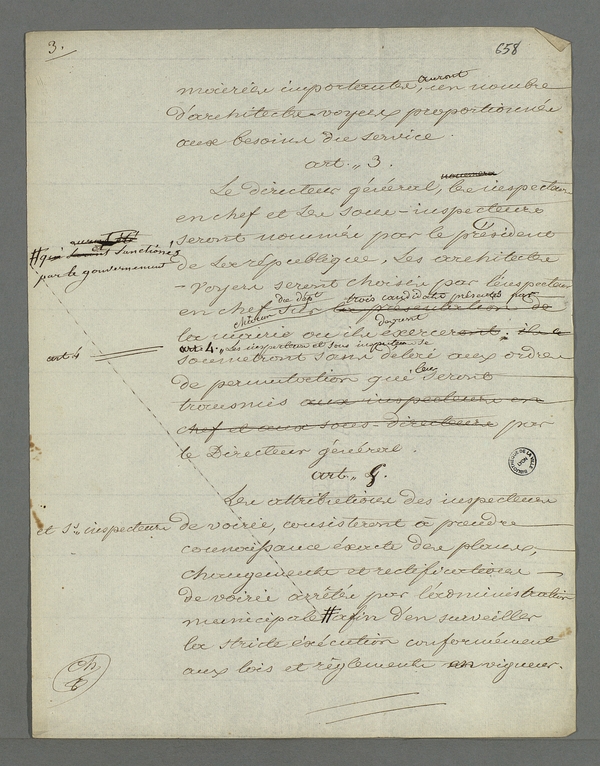 3.
658
mairies importantes, auront un nombre
d'architectes-voyers proportionnés
aux besoins du service.
art. 3.
nommera
Le directeur général, les inspecteurs
en chef et les sous-inspecteurs
seront nommés par le président
de la république, les architectes
-voyers seront choisis par l'inspecteur
en chef du dépt
sur la présentation de
trois candidats présentés par
la mairie où ils devront exerceront. ils se
art. 4. Les inspecteurs et sous inspecteurs se
soumetront sans délai aux ordres
de permutation qui leur seront
transmis aux inspecteurs en
chef et aux sous-directeurs par
le Directeur général.
art. 5.
Les attributions des inspecteurs
et Ss inspecteurs de voirie, consisteront à prendre
connaissance éxacte des plans,
changements et rectifications
de voirie arrêtés par l'administration
municipale # afin d'en surveiller
la stricte éxécution conformément
aux lois et réglements en vigueur.
# qui
et sanctionés
par le gouvernement
art 4
BIBLIOTHEQUE DE LA VILLE
LYON